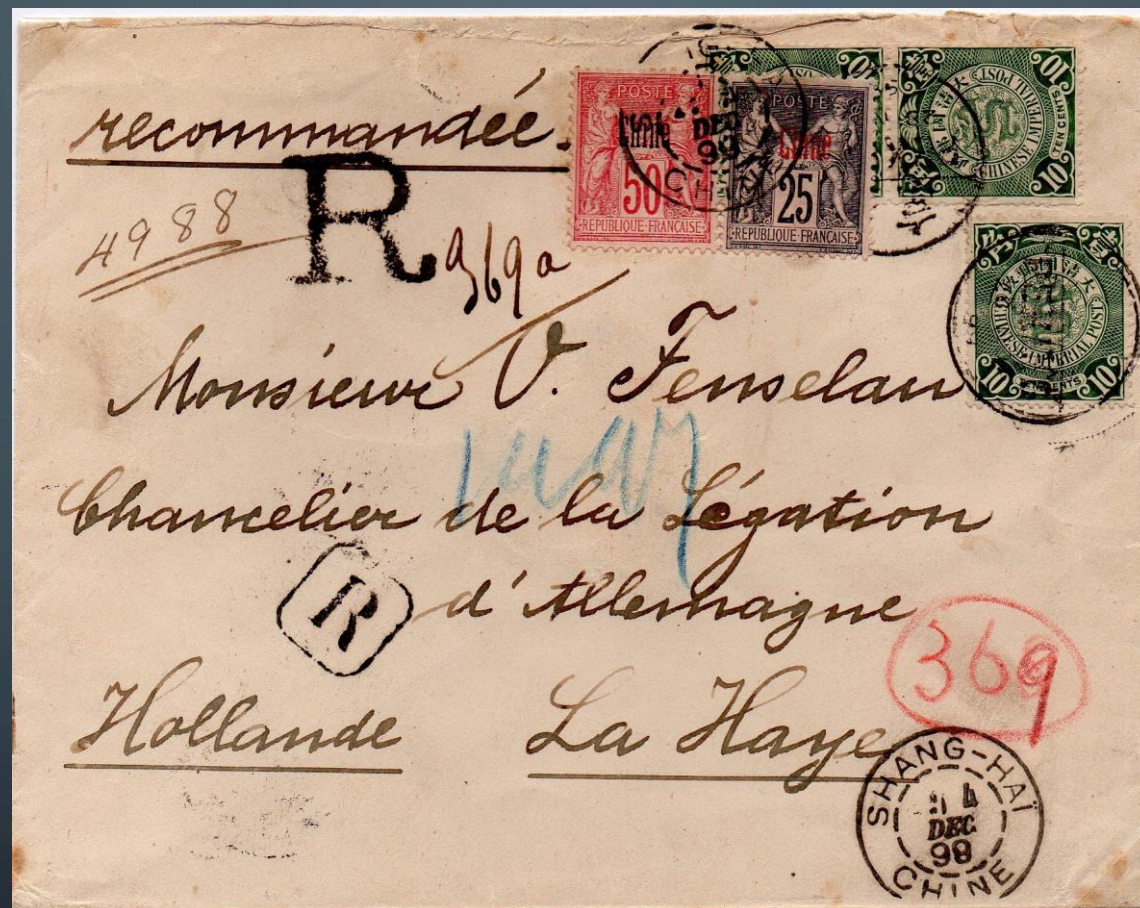 recommandée.
R
4988
369a
Chine
50
REPUBLIQUE FRANÇAISE
POSTE
Chine
25
REPUBLIQUE FRANÇAISE
DEC
CHINE
10
10
大清國郵政
CHINESE IMPERIAL POST
10
TEN CENTS
大清國郵政
CHINESE IMPERIAL POST
10
CENTS
10
Monsieur O. Fenselau
Chancelier de la Légation
d'Allemagne
R
369
Hollande La Haye
SHANG-HAÏ
DEC
CHINE